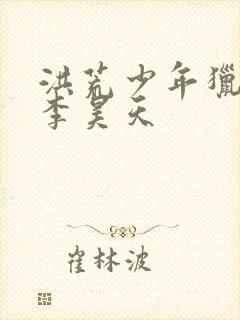 洪荒少年猎
李昊天
崔林波